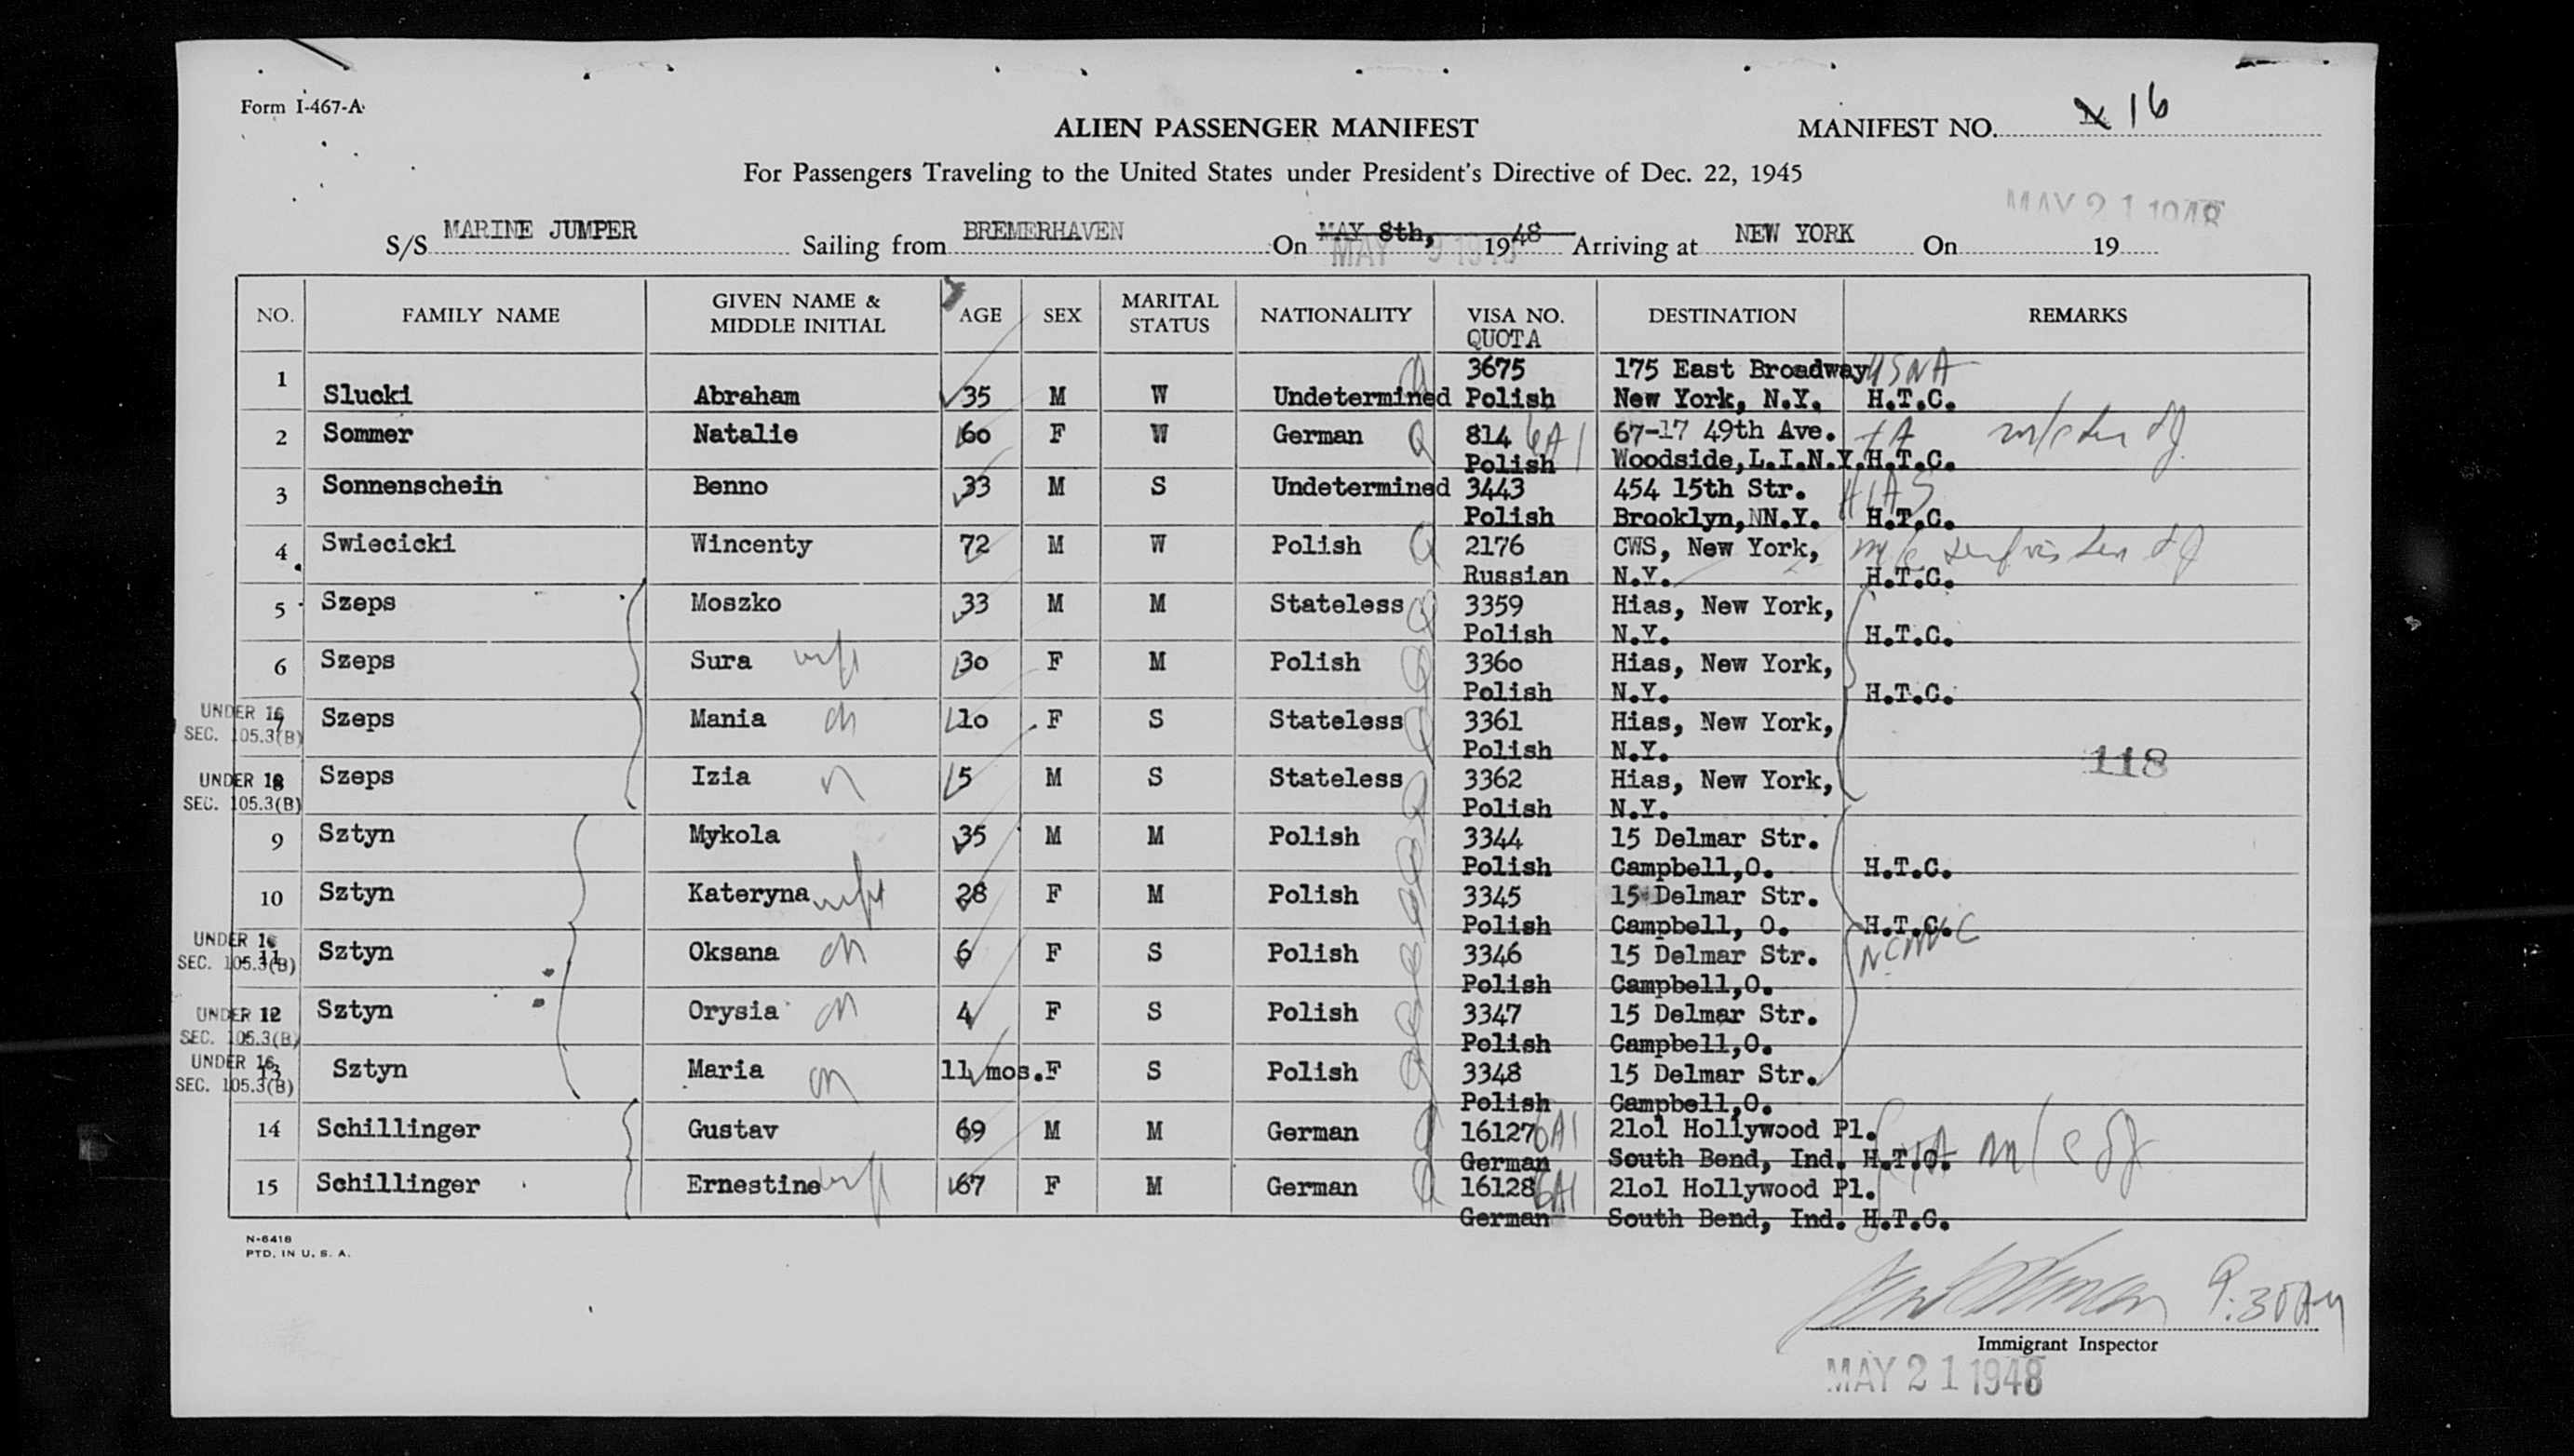 Form I-467-A
ALIEN PASSENGER MANIFEST
MANIFEST NO. 16
For Passengers Traveling to the United States under President's Directive of Dec. 22, 1945
MAY 21 1948
S/S MARINE JUMPER Sailing from BREMERHAVEN On MAY 8th, 1948 Arriving at NEW YORK On 19
MAY 9 1948
NO. FAMILY NAME GIVEN NAME & MIDDLE INITIAL AGE SEX MARITAL STATUS NATIONALITY VISA NO. QUOTA DESTINATION REMARKS
1 Slucki Abraham 35 M W Undetermined 3675 175 East Broadway USNA
Polish New York, N.Y. H.T.C.
2 Sommer Natalie 60 F W German Q 814 6A1 67-17 49th Ave.
Polish Woodside,L.I.N.Y.H.T.C.
3 Sonnenschein Benno 33 M S Undetermined 3443 454 15th Str. HIAS
Polish Brooklyn,NN.Y. H.T.C.
4 Swiecicki Wincenty 72 M W Polish Q 2176 CWS, New York,
Russian N.Y. H.T.C.
5 Szeps Moszko 33 M M Stateless Q 3359 Hias, New York,
Polish N.Y. H.T.C.
6 Szeps Sura wife 30 F M Polish Q 3360 Hias, New York,
Polish N.Y. H.T.C.
UNDER 16
SEC. 105.3(B)
7 Szeps Mania ch 10 F S Stateless Q 3361 Hias, New York,
Polish N.Y.
118
UNDER 16
SEC. 105.3(B)
8 Szeps Izia 5 M S Stateless Q 3362 Hias, New York,
Polish N.Y.
9 Sztyn Mykola 35 M M Polish Q 3344 15 Delmar Str.
Polish Campbell,O. H.T.C.
10 Sztyn Kateryna wife 28 F M Polish Q 3345 15 Delmar Str.
Polish Campbell, O. H.T.C.
NCWC
UNDER 16
SEC. 105.3(B)
11 Sztyn Oksana ch 6 F S Polish Q 3346 15 Delmar Str.
Polish Campbell,O.
UNDER 16
SEC. 105.3(B)
12 Sztyn Orysia ch 4 F S Polish Q 3347 15 Delmar Str.
Polish Campbell,O.
UNDER 16
SEC. 105.3(B)
13 Sztyn Maria ch 11 mos. F S Polish Q 3348 15 Delmar Str.
Polish Campbell,O.
14 Schillinger Gustav 69 M M German Q 16127 6A1 2101 Hollywood Pl.
German South Bend, Ind. H.T.C.
15 Schillinger Ernestine wife 67 F M German Q 16128 6A1 2101 Hollywood Pl.
German South Bend, Ind. H.T.C.
N-6418
PTD. IN U. S. A.
9:30 AM
Immigrant Inspector
MAY 21 1948